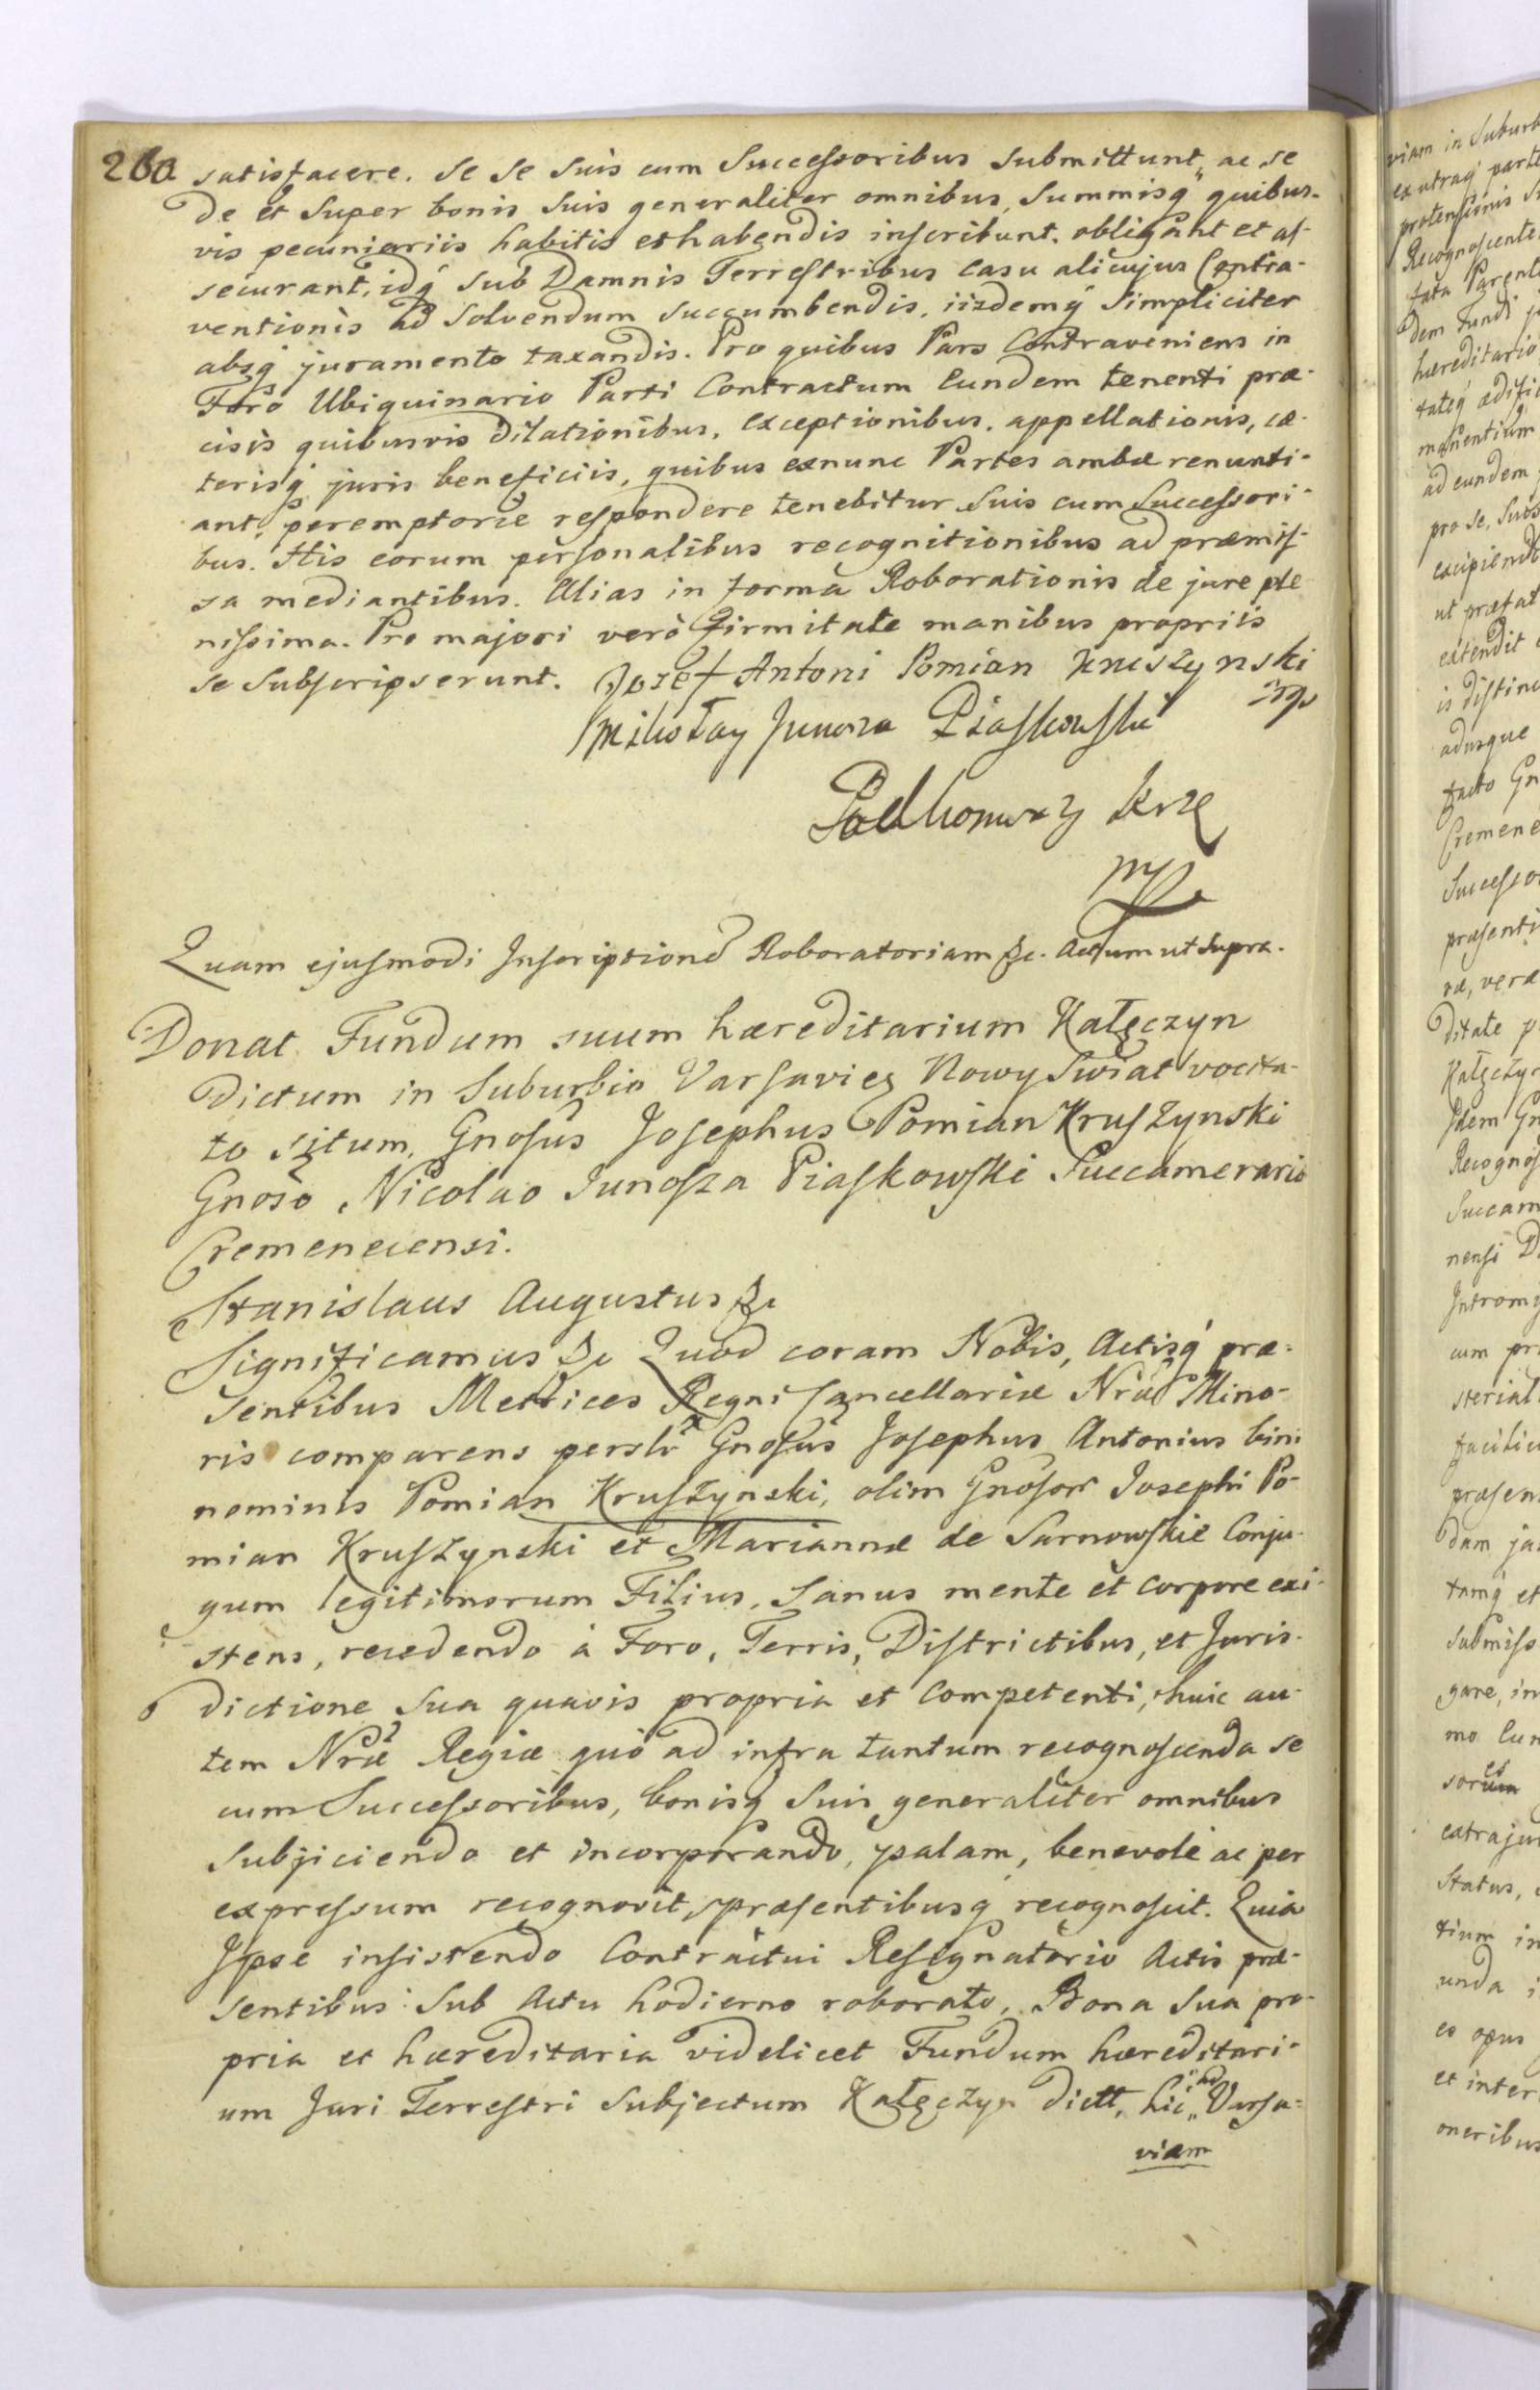 260 satisfacere. Se se suis cum Successoribus submittunt, ac se
de et super bonis suis generaliter omnibus, summisq́ quibus-
vis pecuniariis habitis et habendis inscribunt, obligant et as-
securant, idq́ sub Damnis Terrestribus casu alicujus Contra-
ventionis ad solvendum succumbendis, iisdemq́ simpliciter
absq́ juramento taxandis. Pro quibus Pars Contraveniens in
Foro Ubiquinario Parti Contractum Eundem tenenti præ-
cisis quibusvis dilationibus, exceptionibus, appellationis, cæ-
terisq́ juris beneficiis, quibus exnunc Partes ambæ renunti-
ant, peremptorie respondere tenebitur suis cum Successori-
bus. His eorum personalibus recognitionibus ad præmis-
sa mediantibus. Alias in forma Roborationis de jure ple
nissima. Pro majori verò firmitate manibus propriis
se subscripserunt. Jozef Antoni Pomian Kruszynski
mp
Mikołay Junosza Piaskowski
Podkomorzy Krze
mp
Quam ejusmodi Inscriptione Roboratoriam &c. Actum ut supra.
Donat Fundum suum hæreditarium Kałęczyn
dictum in Suburbio Varsavien Nowy Swiat vocita-
to situm, Gnosus Josephus Pomian Kruszynski
Gnoso Nicolao Junosza Piaskowski Succamerario
Cremenecensi.
Stanislaus Augustus &c
Significamus &c Quod coram Nobis, Actisq́ præ-
sentibus Metrices Regni Cancellariæ Nræ Mino-
ris comparens perslr Gnosus Josephus Antonius bini
nominis Pomian Kruszynski, olim Gnosor Josephi Po-
mian Kruszynski et Mariannæ de Sarnowskie Conju-
gum legitimorum Filius, sanus mente et corpore exi-
stens, recedendo à Foro, Terris, Districtibus, et Juris-
dictione sua quavis propria et competenti, huic au-
tem Nræ Regiæ quò ad infra tantum recognoscenda se
cum Successoribus, bonisq́ suis generaliter omnibus
subjiciendo et incorporando, palam, benevolè ac per
expressum recognovit, præsentibusq́ recognoscit. Quia
Ipse insistendo Contractui Resignatorio Actis præ-
sentibus sub Actu hodierno roborato, Bona sua pro-
pria et hæreditaria videlicet Fundum hæreditari-
um Juri Terrestri subjectum Kałęczyn dictt, hic ad Varsa-
viam